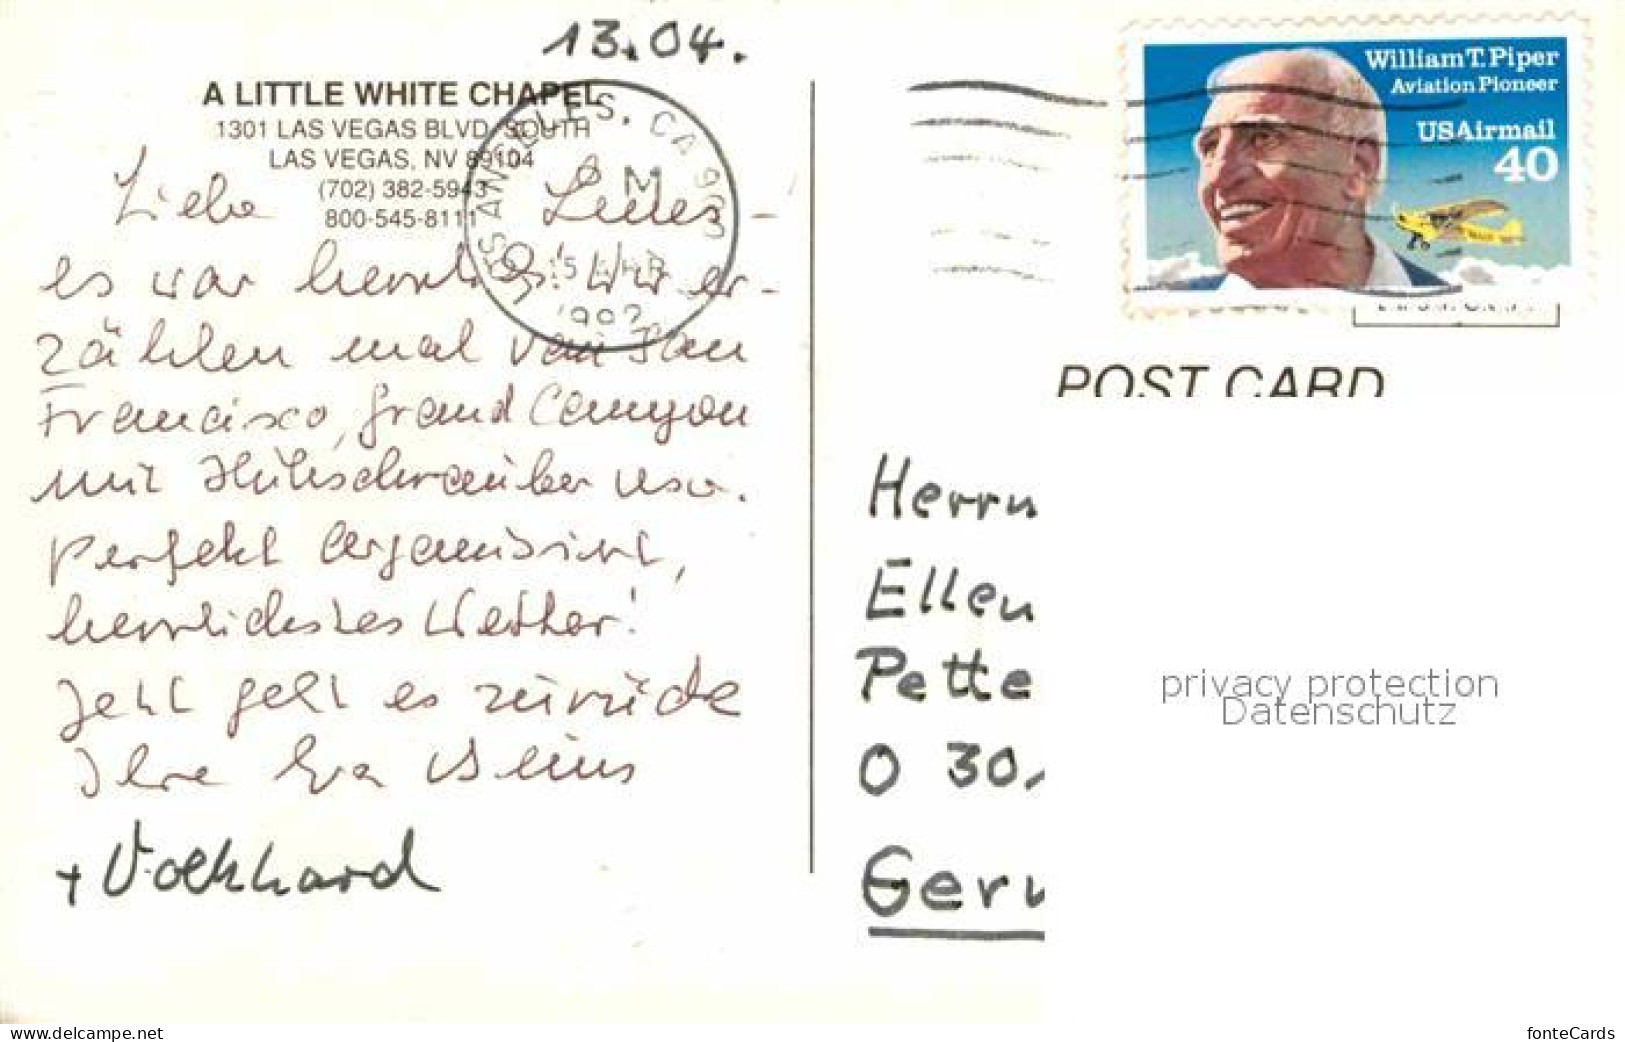 13.04.
A LITTLE WHITE CHAPEL
1301 LAS VEGAS BLVD. SOUTH
LAS VEGAS, NV 89104
(702) 382-5943
800-545-8111
LOS ANGELES, CA 900
M
15 APR
1992
Liebe
es war herrlich! Wir er-
zählen mal von San
Francisco, Grand Canyon
mit Hubschrauber usw.
Perfekt organisiert,
herrlichstes Wetter!
Jetzt geht es zurück
Ihre Eva
+ Volkhard
William T. Piper
Aviation Pioneer
USAirmail
40
POST CARD
Herrn
Ellen
Pette
O 30
Ger
privacy protection
Datenschutz
www.delcampe.net
fonteCards